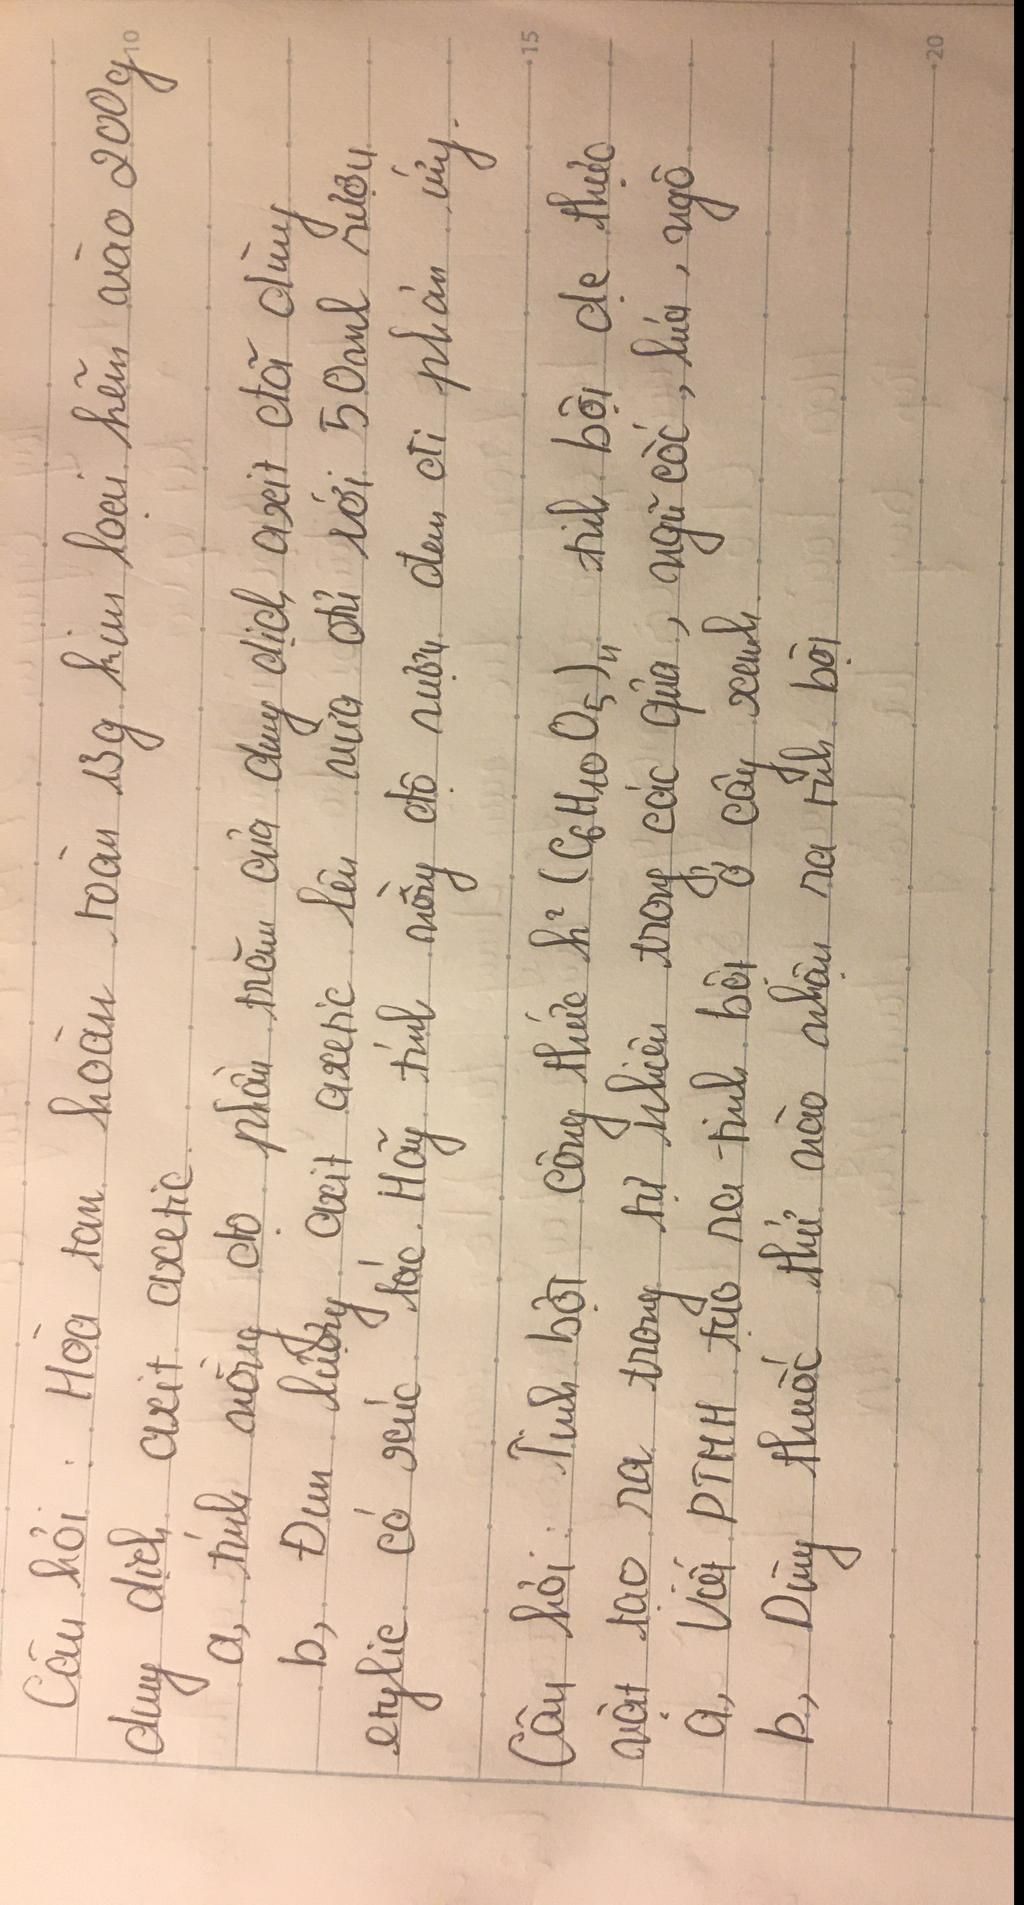 Câu hỏi : Hòa tan hoàn toàn 13g kim loại kẽm vào 200g
dung dịch axit axetic.
a, tính nồng độ phần trăm của dung dịch axit đã dùng
b, Đun lượng axit axetic lên nữa chỉ với 50ml rượu
etylic có xúc tác. Hãy tính nồng độ rượu đem đi phản ứng.
Câu hỏi : Tinh bột công thức h² (C6H10O5)n tinh bột dc thực
vật tạo ra trong tự nhiên trong các quả, ngũ cốc, lúa, ngô
a, Viết PTHH tạo ra tinh bột ở cây xanh.
b, Dùng thuốc thử nào nhận ra tinh bột
10
15
20